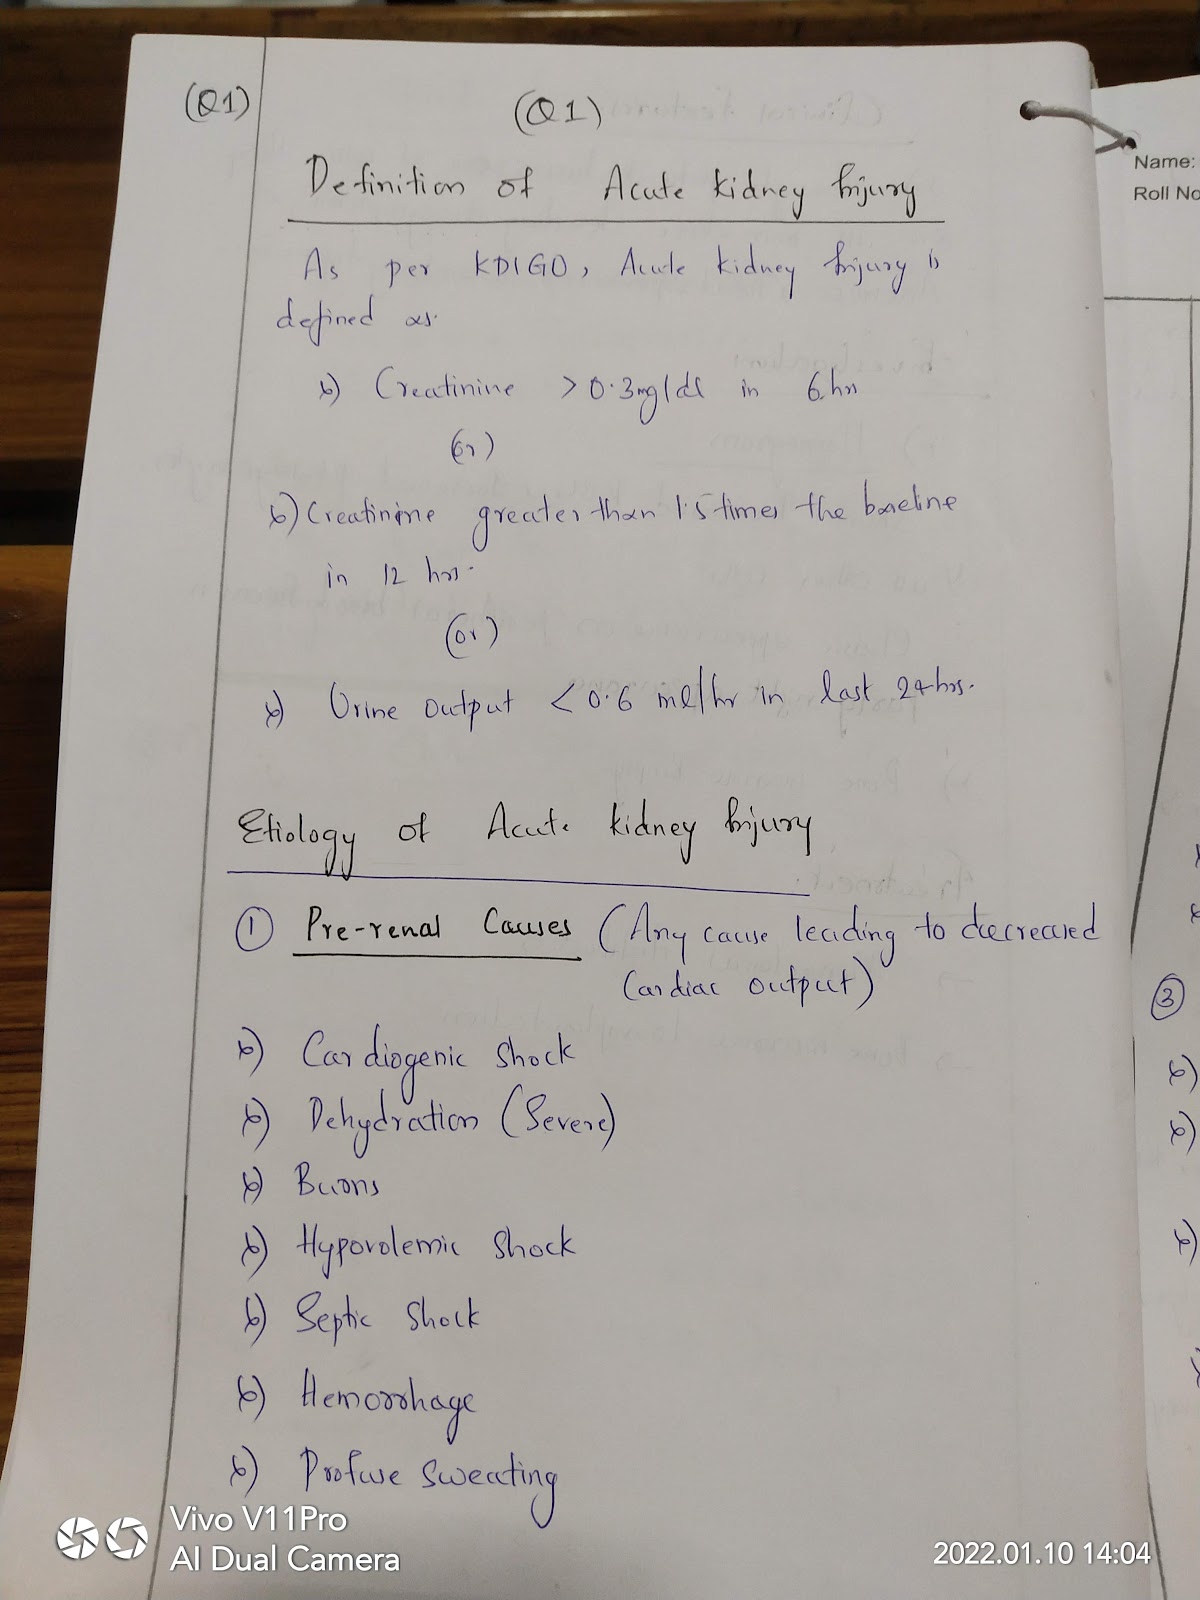 (Q1)
(Q1)
Definition of Acute kidney Injury
As per KDIGO, Acute kidney Injury is
defined as
Creatinine >0.3mg/dl in 6 hrs
(or)
Creatinine greater than 1.5 times the baseline
in 12 hrs.
(or)
Urine output <0.6 ml/hr in last 24 hrs.
Etiology of Acute kidney Injury
① Pre-renal Causes (Any cause leading to decreased
Cardiac output)
Cardiogenic shock
Dehydration (Severe)
Burns
Hypovolemic shock
Septic shock
Hemorrhage
Profuse sweating
Name:
Roll No
③
Vivo V11Pro
AI Dual Camera
2022.01.10 14:04